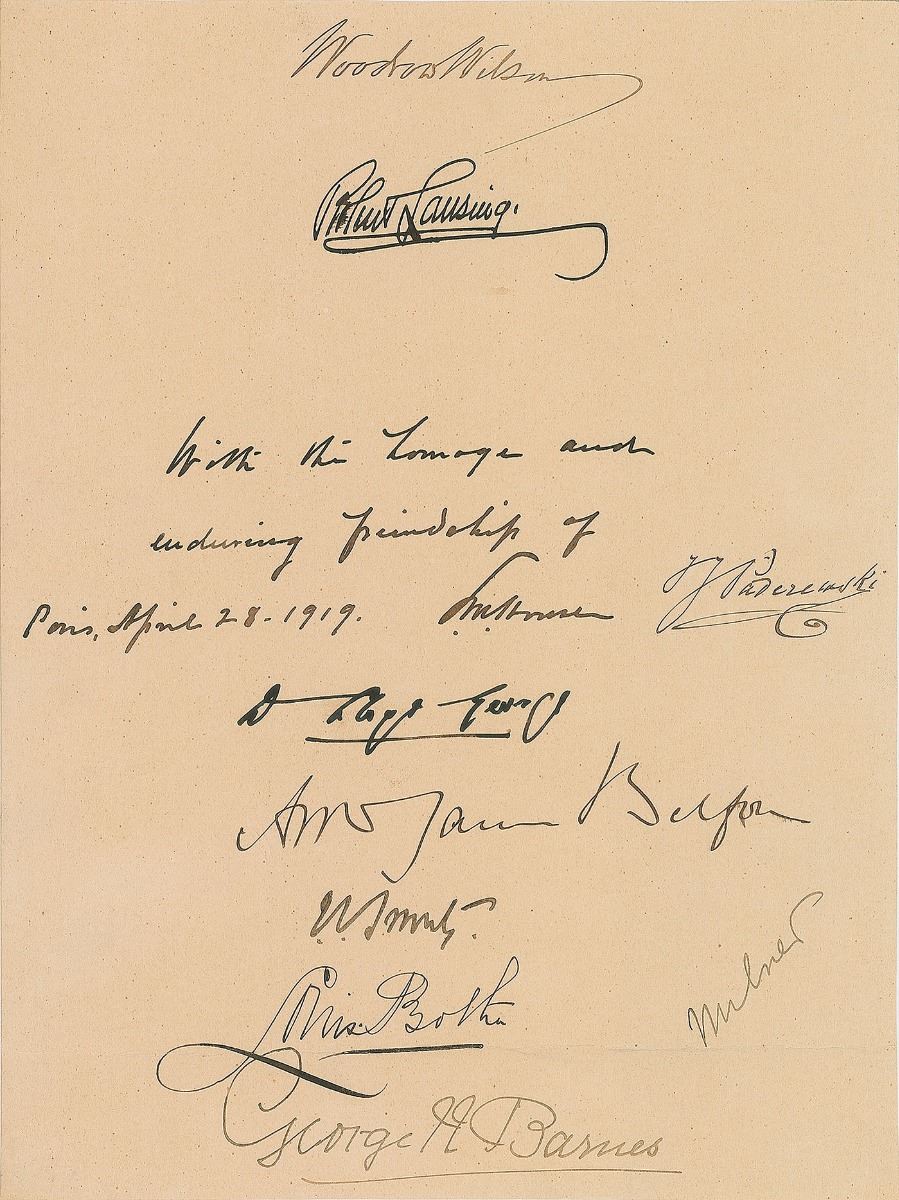 Woodrow Wilson
Robert Lansing.
With the homage and
enduring friendship of
Paris, April 28-1919. EMHouse
IJ Paderewski
D Lloyd George
Arthur James Balfour
J.C. Smuts.
Louis Botha
Milner
George N Barnes